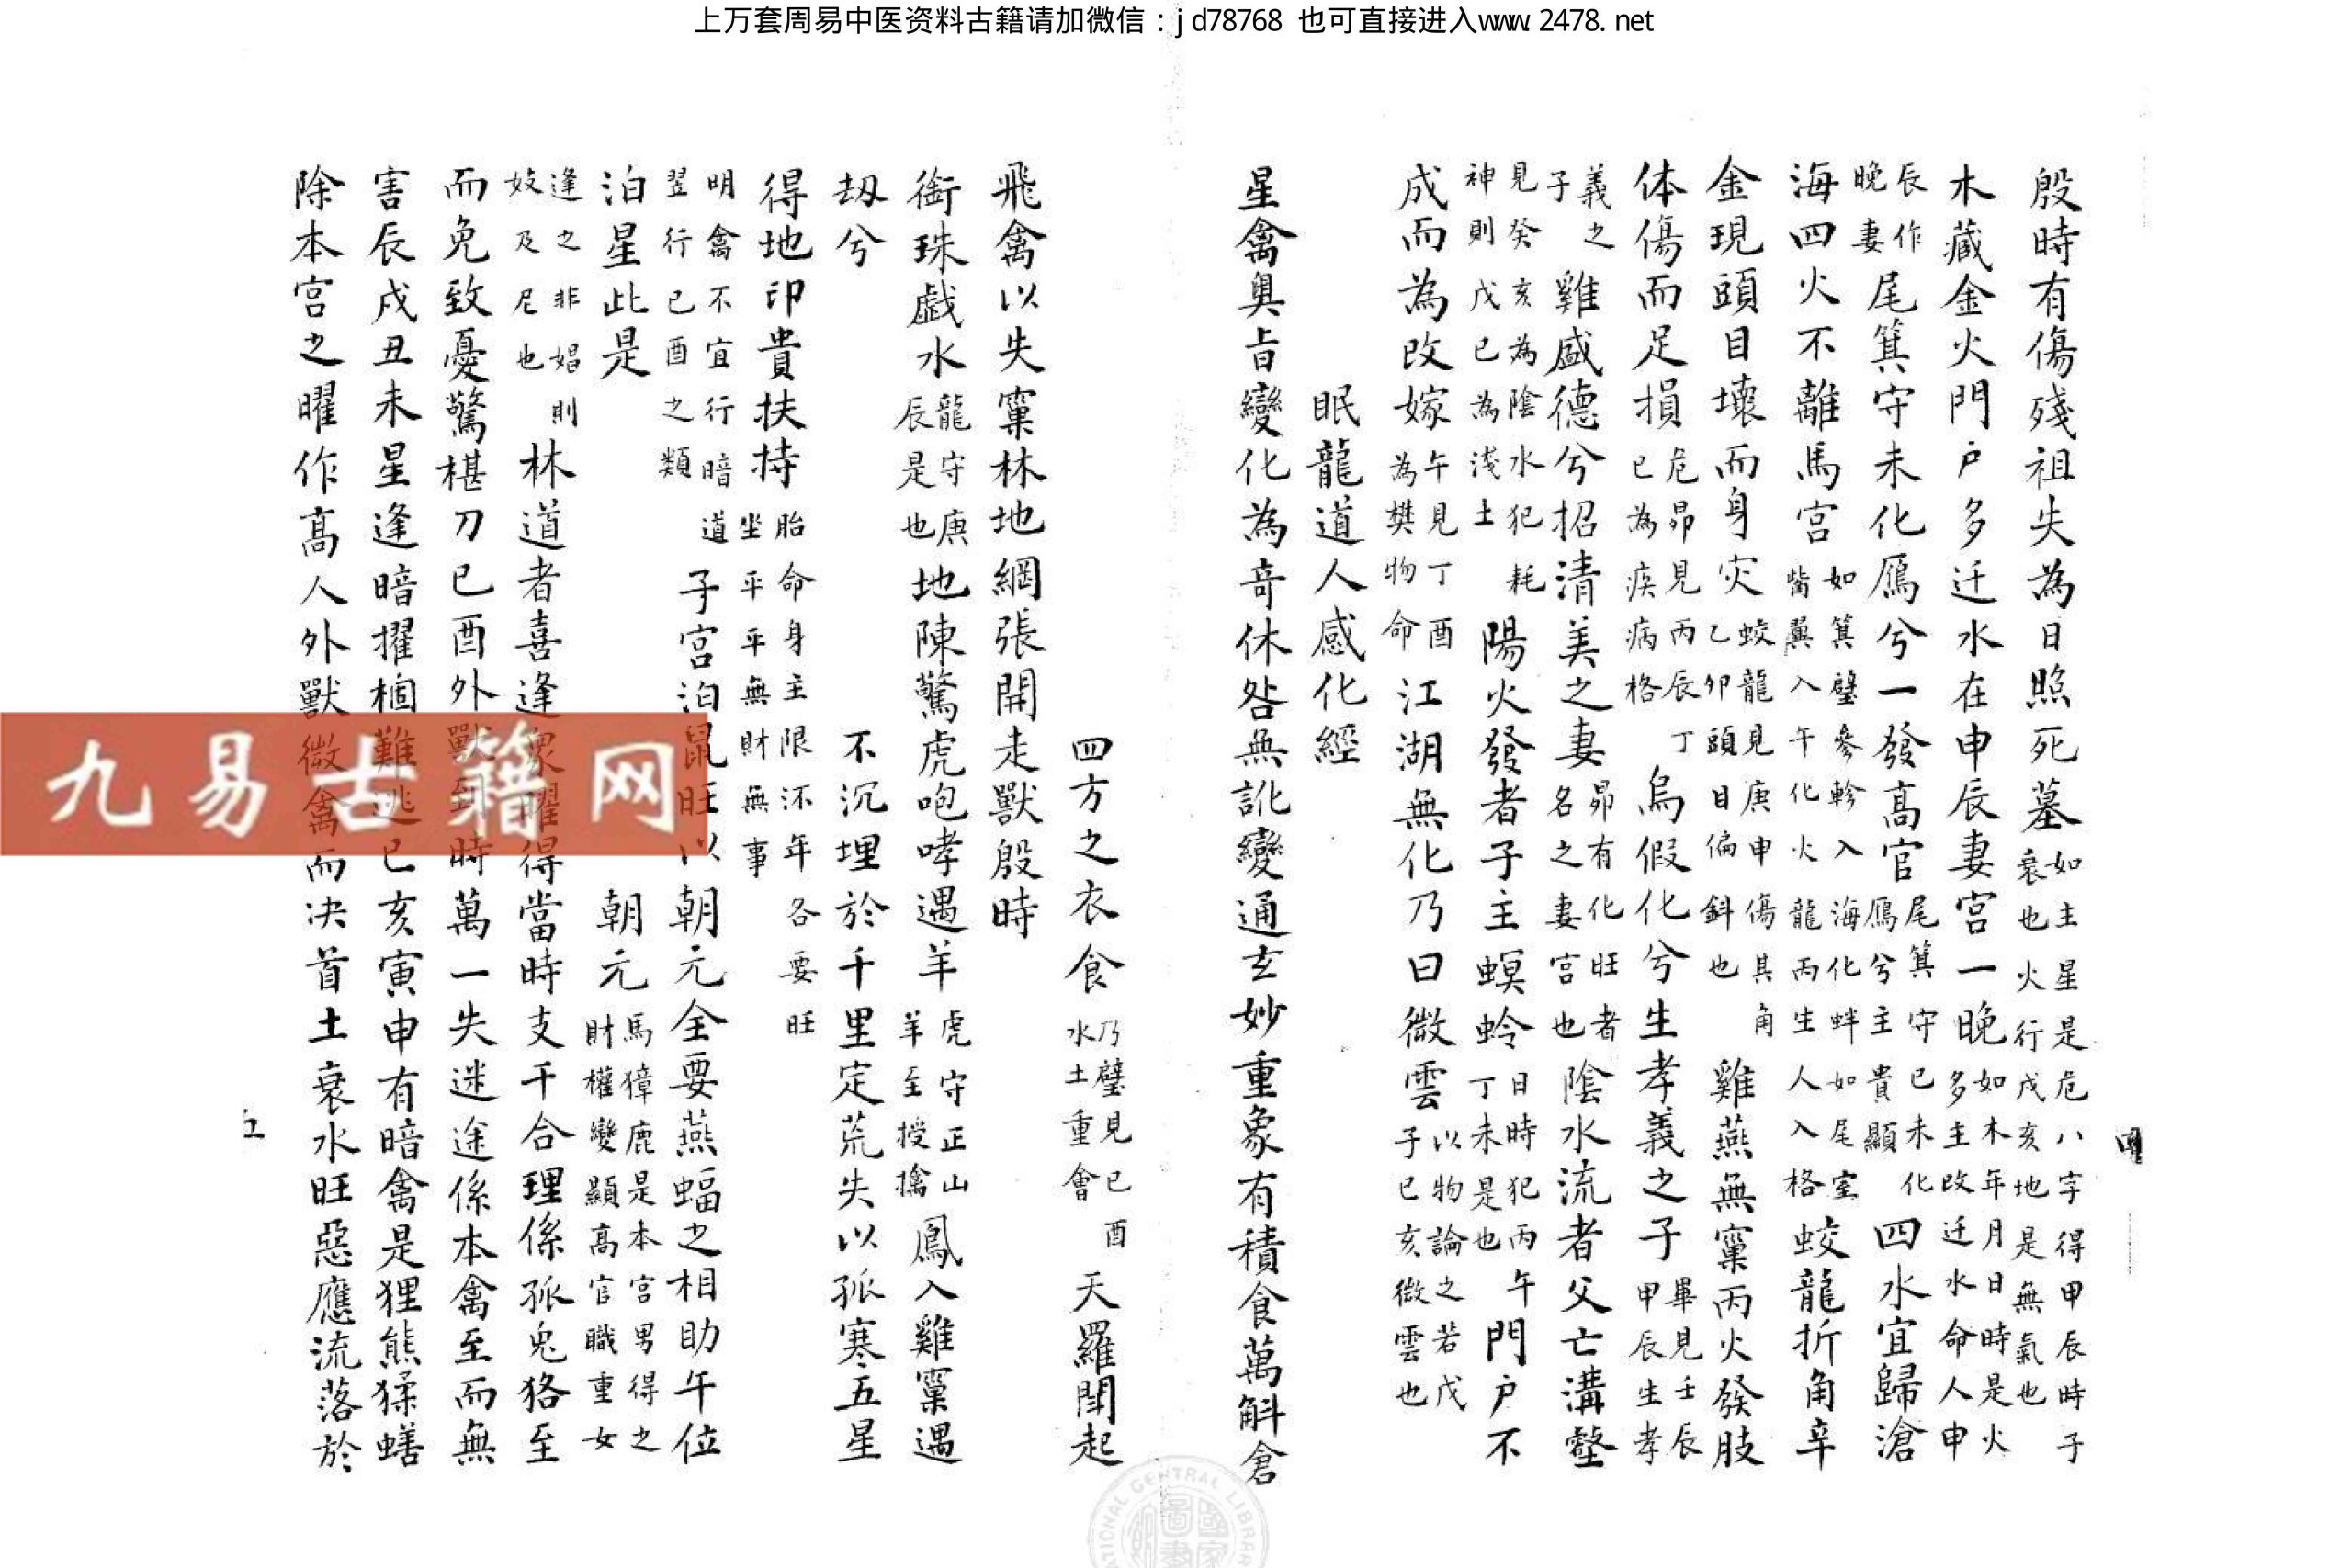 上万套周易中医资料古籍请加微信：jd78768 也可直接进入www.2478.net
殷時有傷殘祖失為日照死墓如主星是危八字得甲辰時子衰也火行戊亥地是無氣也
木藏金火門戶多迁水在申辰妻宮一晚如木年月日時是火多主改迁水命人申
辰作晚妻尾箕守未化鴈兮一發高官尾箕守已未化鴈兮主貴顯四水宜歸滄
海四火不離馬宮如箕璧參軫入海化蚌如尾室觜翼入午化火龍丙生人入格蛟龍折角辛
金現頭目壞而身灾蛟龍見庚申傷其角乙卯頭目偏斜也雞燕無窠丙火發肢
体傷而足損危昴見丙辰丁已為疾病格烏假化兮生孝義之子畢見壬辰甲辰生孝
義之子雞盛德兮招清美之妻昴有化旺者名之妻宮也陰水流者父亡溝壑
見癸亥為陰水犯耗神則戊已為淺土陽火發者子主螟蛉日時犯丙午丁未是也門戶不
成而為改嫁午見丁酉為樊物命江湖無化乃曰微雲以物論之若戊子已亥微雲也
眠龍道人感化經
星禽奥旨變化為竒休咎無訛變通玄妙重象有積食萬斛倉
四
四方之衣食乃璧見已酉水土重會天羅閗起
飛禽以失窠林地網張開走獸殷時
銜珠戯水龍守庚辰是也地陳驚虎咆哮遇羊虎守正山羊至授擒鳳入雞窠遇
刼兮不沉埋於千里定荒失以孤寒五星
得地印貴扶持胎命身主限泝年各要旺坐平平無財無事
明禽不宜行暗道翌行已酉之類子宮泊鼠旺以朝元全要燕蝠之相助午位
泊星此是朝元馬獐鹿是本宮男得之財權變顯高官職重女
逢之非娼則妓及尼也林道者喜逢衆曜得當時支干合理係孤兎狢至
而免致憂驚椹刀已酉外獸到時萬一失迷途係本禽至而無
害辰戍丑未星逢暗擢梱難逃已亥寅申有暗禽是狸熊猱蟮
除本宮之曜作高人外獸微禽而决首土衰水旺惡應流落於
五
九易古籍网
NATIONAL CENTRAL LIBRARY